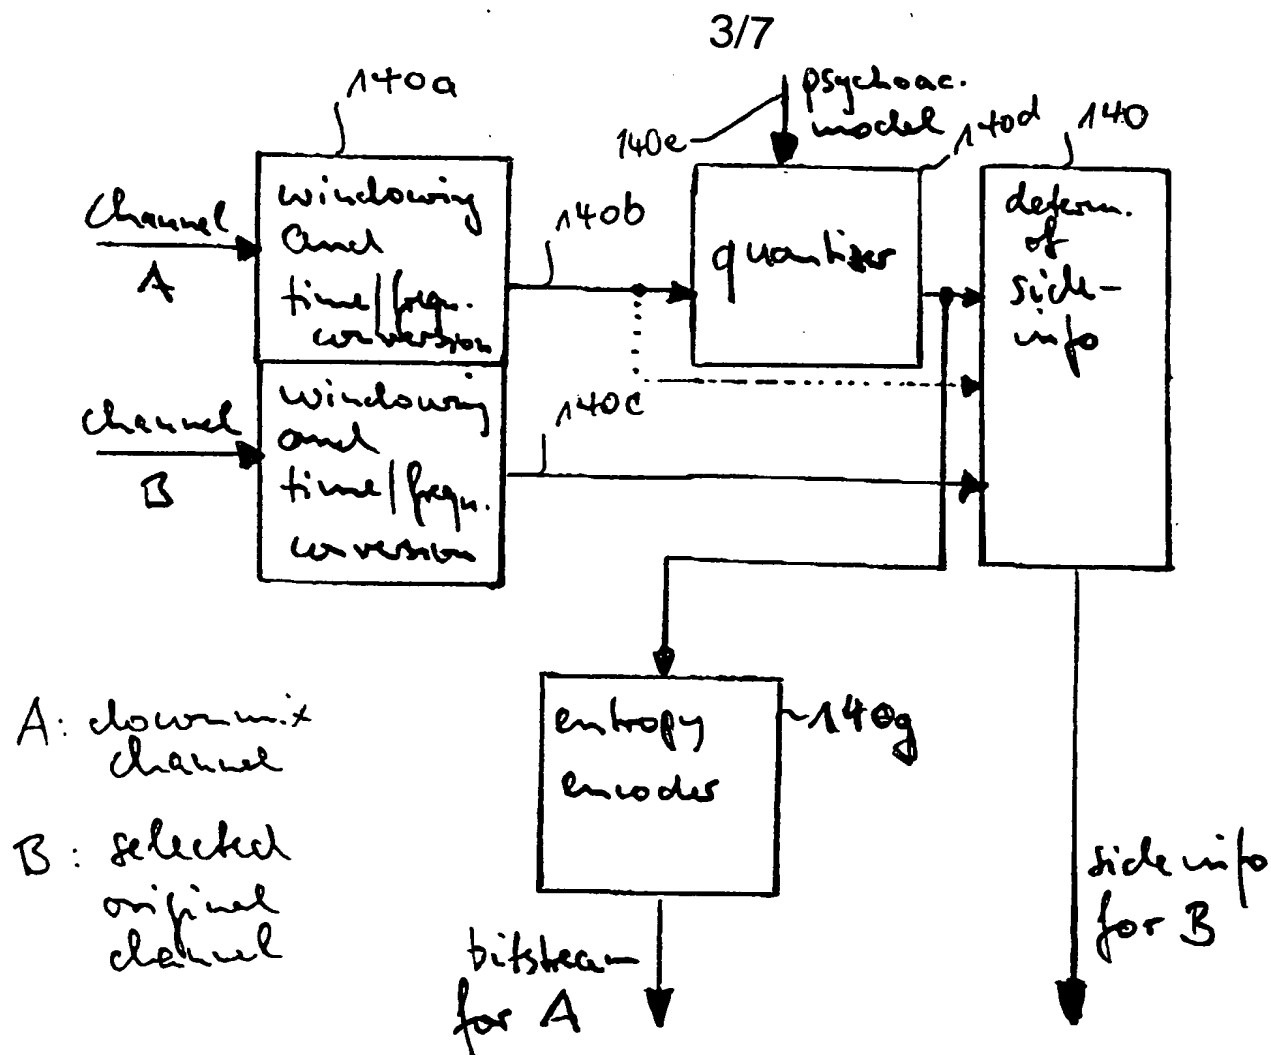 3/7
140a
psychoac.
model
140e
140d
140
Channel
A
windowing
and
time/frequ.
conversion
140b
quantizer
determ.
of
side-
info
channel
B
windowing
and
time/frequ.
conversion
140c
entropy
encoder
140g
A: downmix
channel
B: selected
original
channel
bitstream
for A
side info
for B